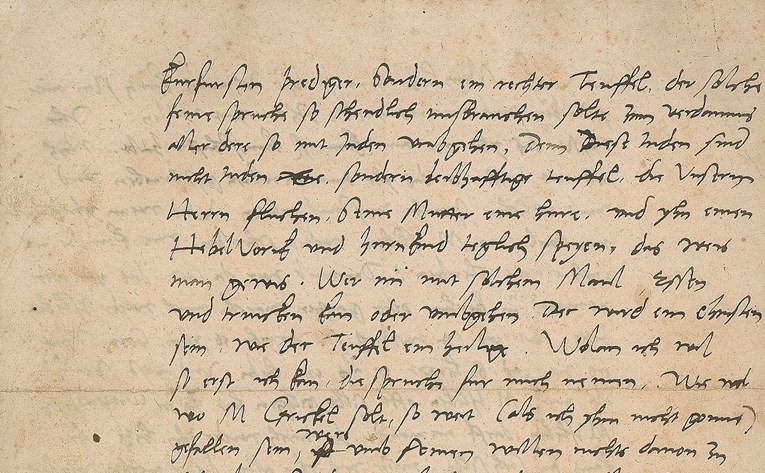 kurfursten prediger, sondern ein rechter Teuffel, der solche
feine spruche so schendlich misbrauchen solte zum verdamnis
aller dere so mit Juden umbgehen, Denn Diese Juden sind
nicht Juden sondern leibhafftige teuffel, die Unsern
Herrn fluchen, Seine Mutter eine hure, und yhn einen
Hebel Vorik und hurnkind teglich speyen, das weis
man gewis. Wer nü mit solchem Maul Essen
und trincken kan oder umbgehen Der wird ein Christen
sein, wie der Teuffel ein heilige. Wolan ich wil
so erst ich kan, die spruche fur mich nemen, Wie wol
wo M Grickel solt, so wert (als ich yhm nicht gonne)
gefallen sein, wers umb seinen willen nichts davon zu